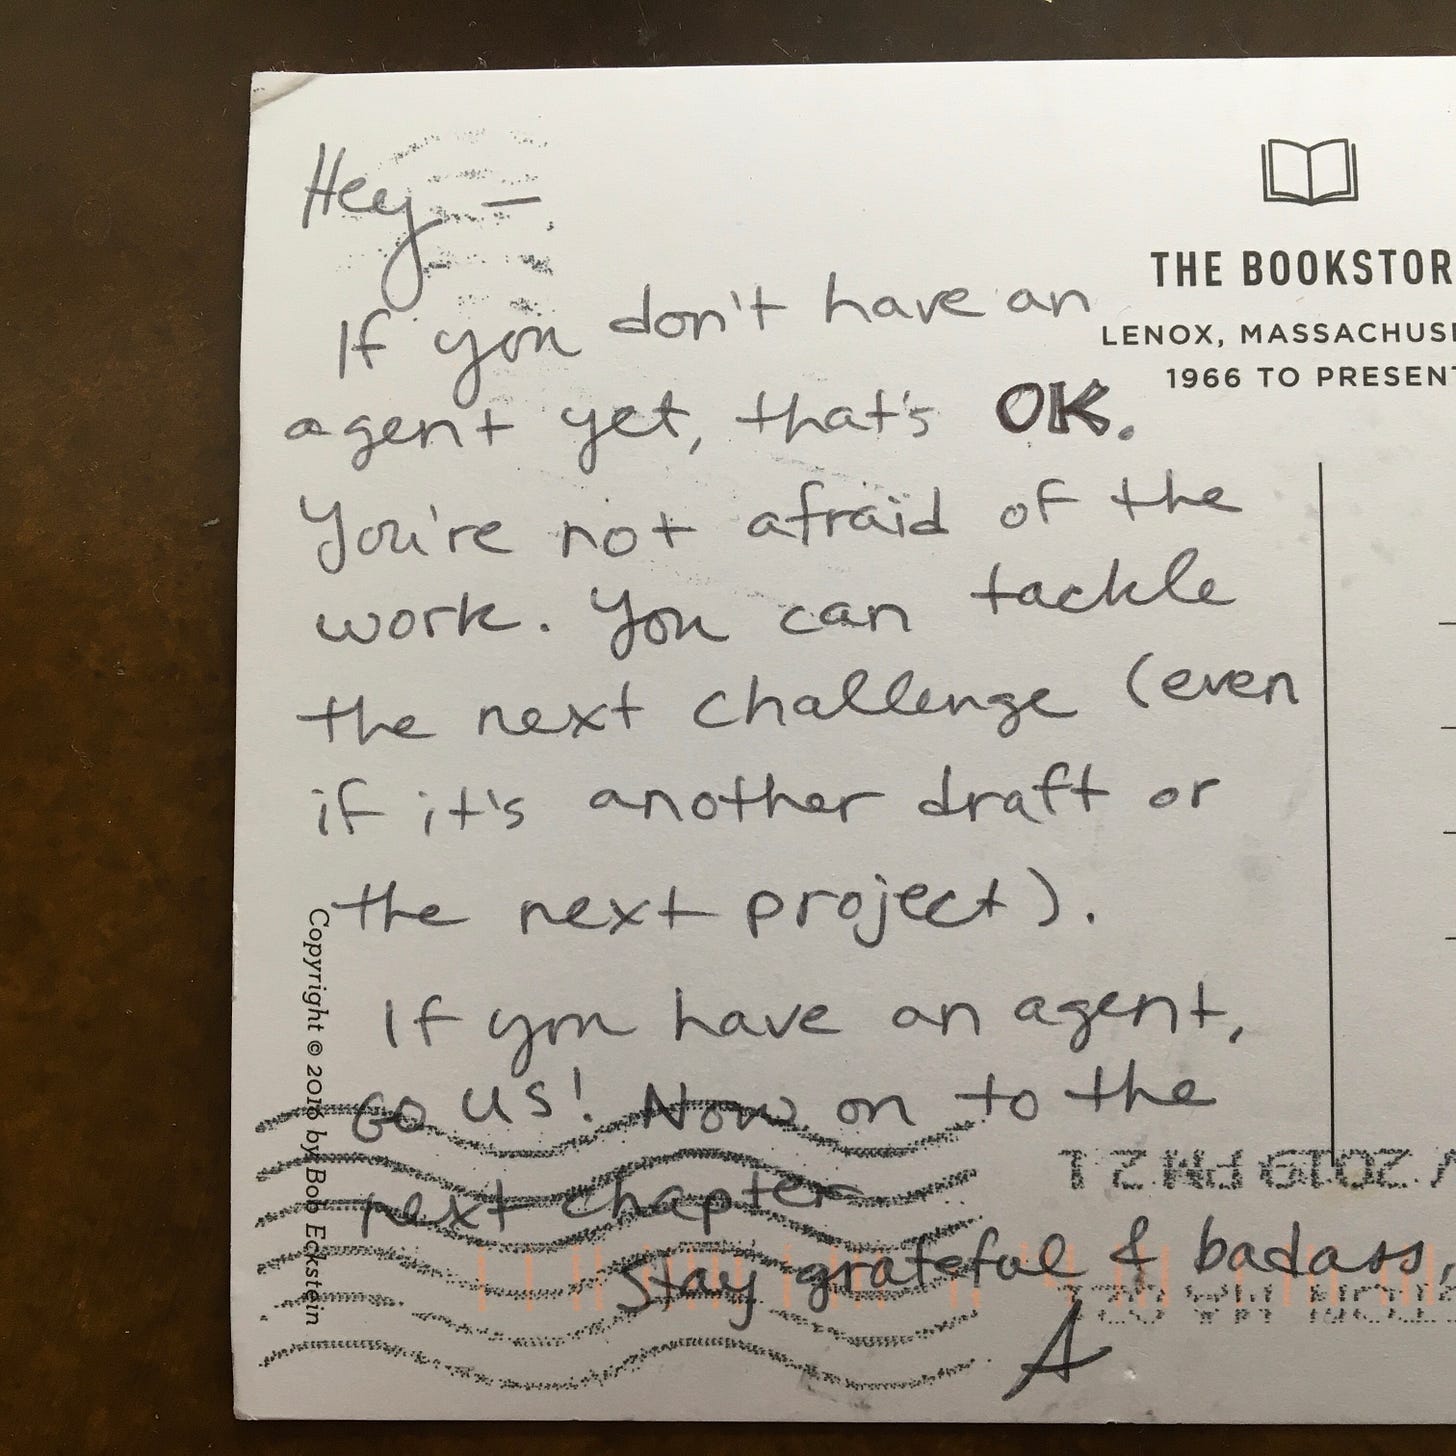 Hey —
If you don't have an
agent yet, that's OK.
You're not afraid of the
work. You can tackle
the next challenge (even
if it's another draft or
the next project).
If you have an agent,
go us! Now on to the
next chapter.
Stay grateful & badass,
A
THE BOOKSTOR
LENOX, MASSACHUS
1966 TO PRESENT
Copyright © 2016 by Bob Eckstein
2019 PM 2 L